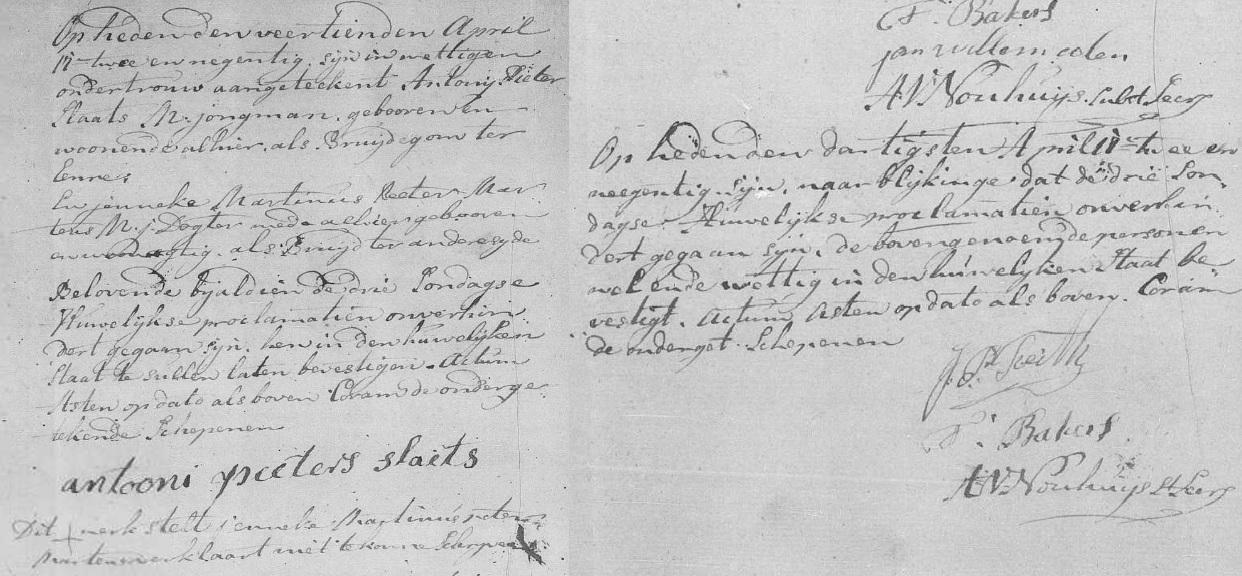 Op heden den veertienden April
17c twee en negentig, sijn in wettigen
ondertrouw aangeteekent Antonij Pieter
Slaats M. jongman, gebooren en
woonende alhier, als Bruijdegom ter
eenre
En jenneke Martinus Peeter Mar
tens N. j. Dogter mede alhier gebooren
en woonagtig, als Bruijd ter andere syde
Belovende bijaldien de drie Sondagse
Huwelijkse proclamatien onverhin
dert gegaan sijn, hen in den huwelijken
Staat te sullen laten bevestigen. Actum
Asten op dato als boven Coram de onderge
tekende Schepenen
antooni peeters slaets
Dit + merk stelt jenneke Martinus Peter
Martens verklaart niet te konnen Schrijven
F. Bakers
jan willem colen
A V Nouhuijs. Subst Secrs
Op heden den dartigsten April 17c twee en
neegentig sijn, naar blijkinge dat de drie Son
dagse Huwelijkse proclamatien onverhin
dert gegaan sijn, de bovengenoemde personen
wel ende wettig in den huwelyken Staat be
vestigt. Actum Asten op dato als boven. Coram
de onderget. Schepenen
F. Bakers
A V Nouhuijs St Secrs